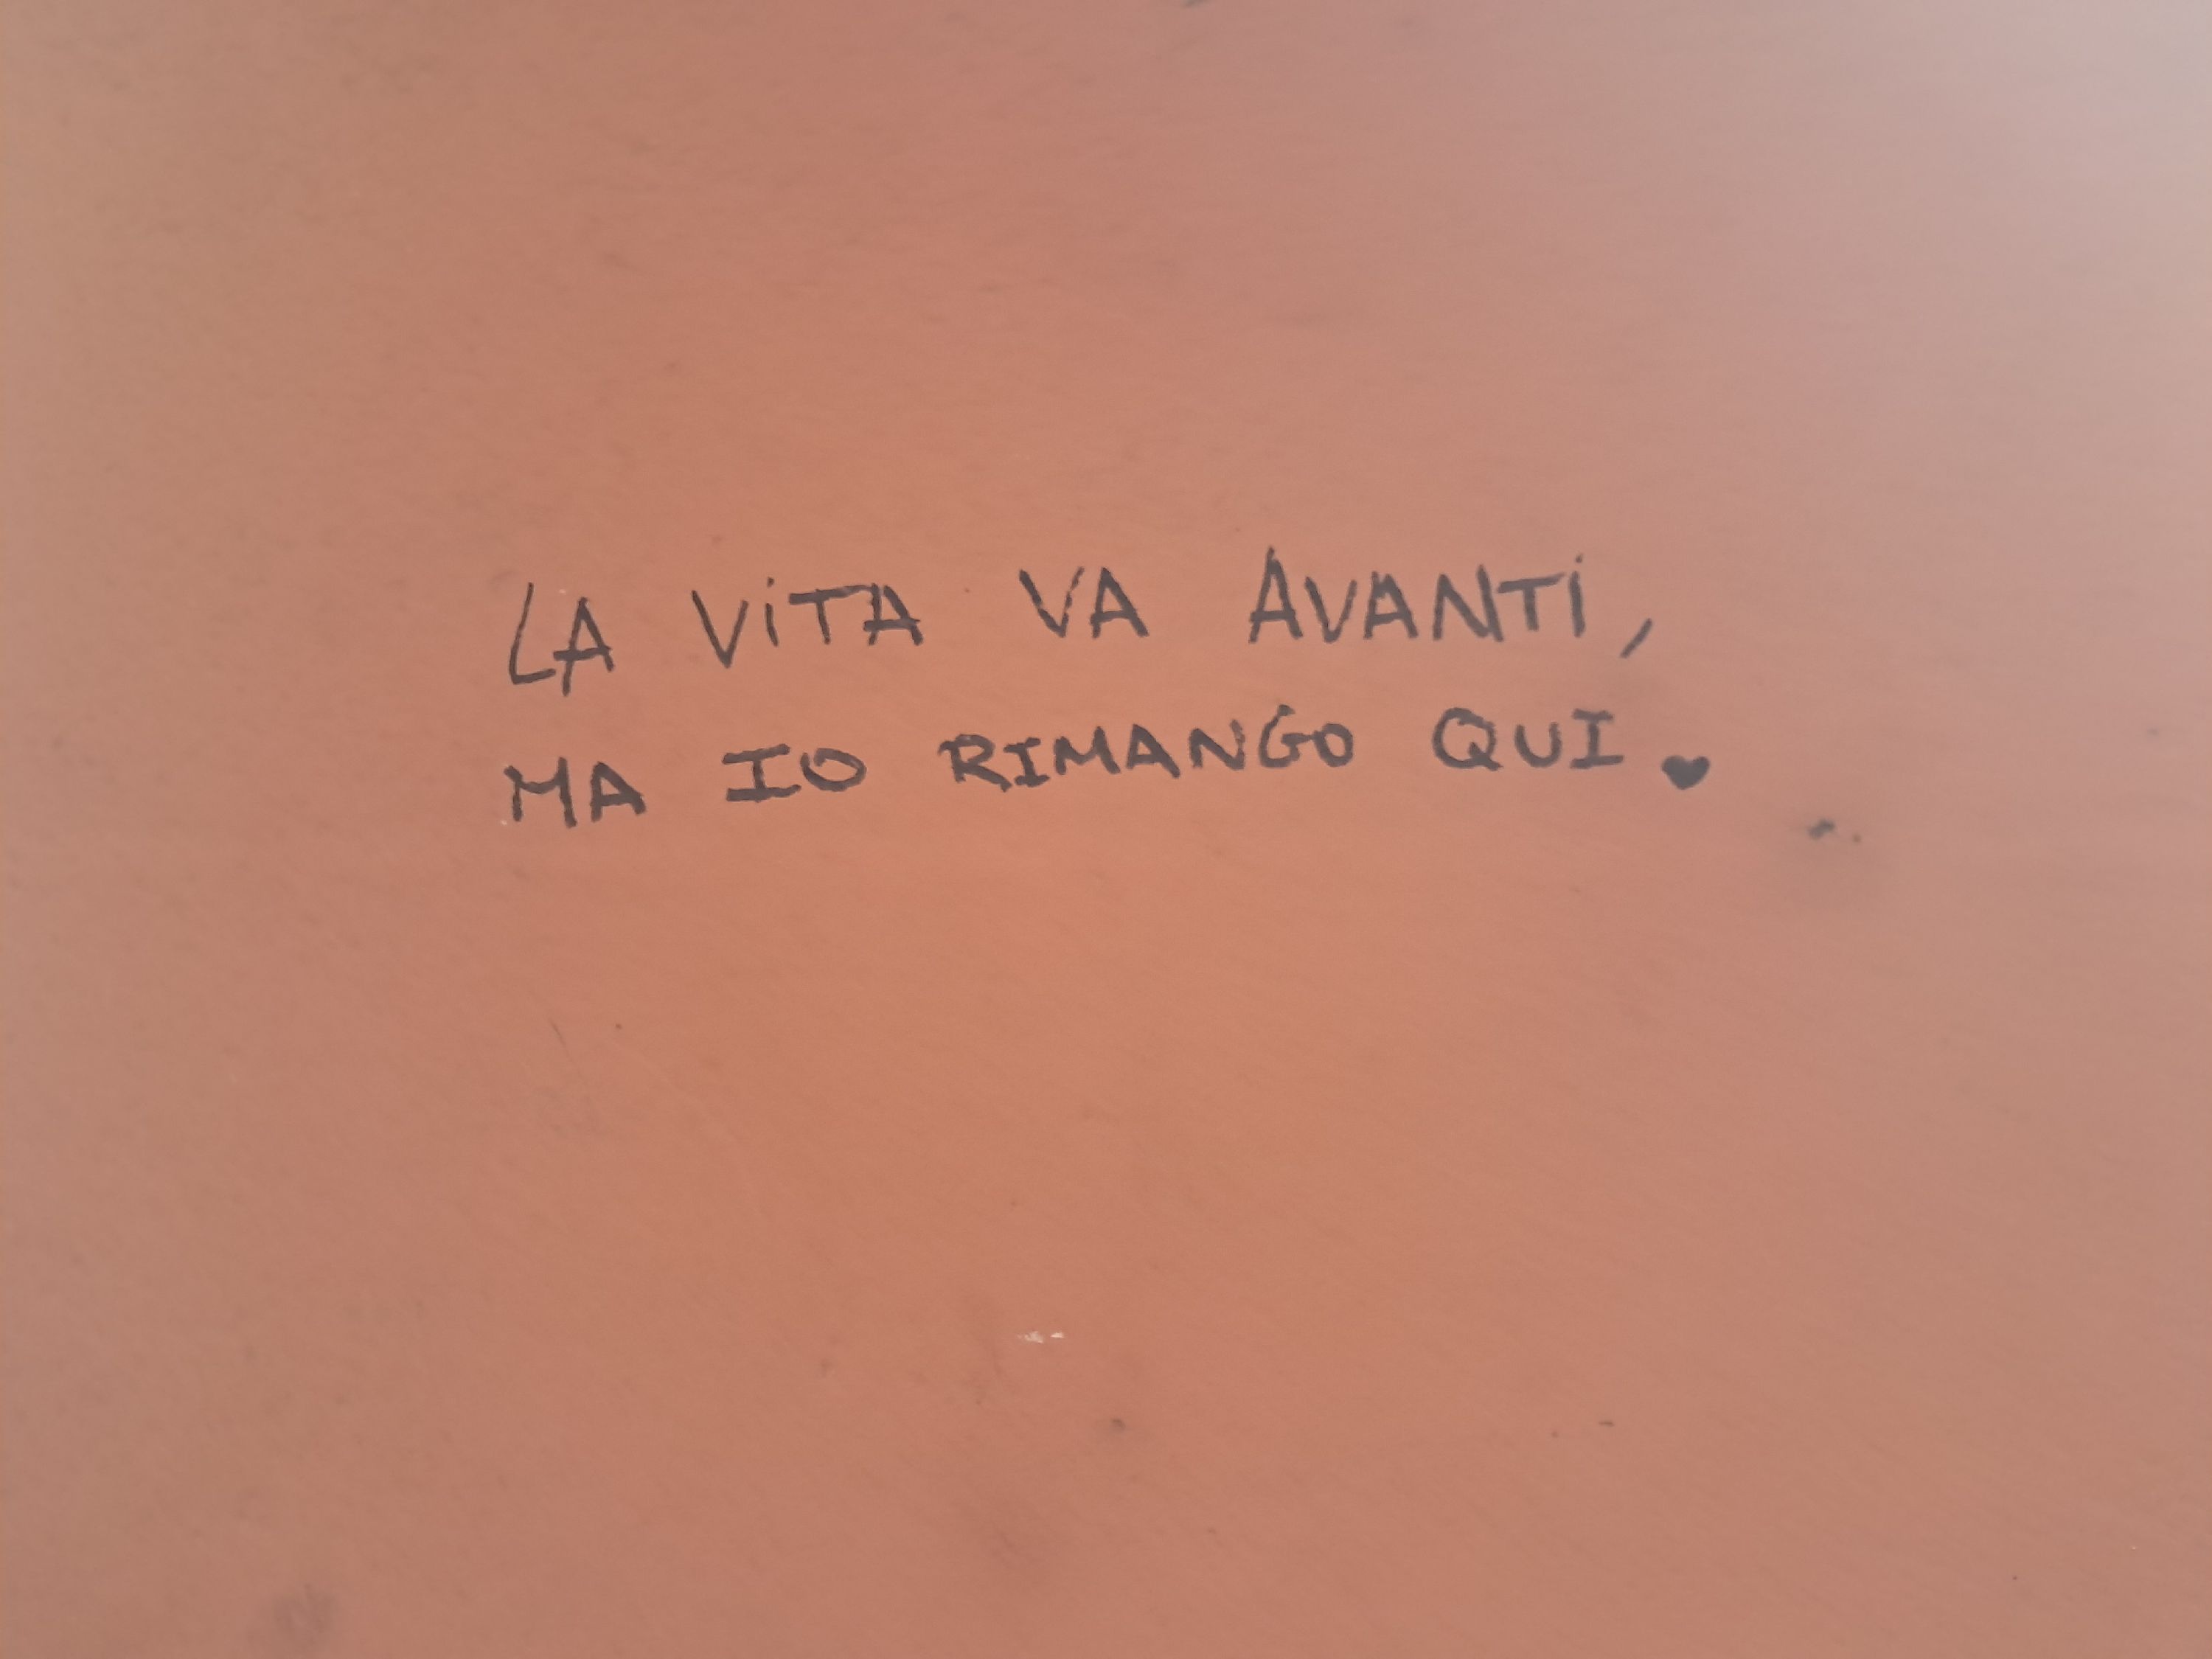 LA ViTA VA AVANTi,
MA IO RIMANGO QUI.